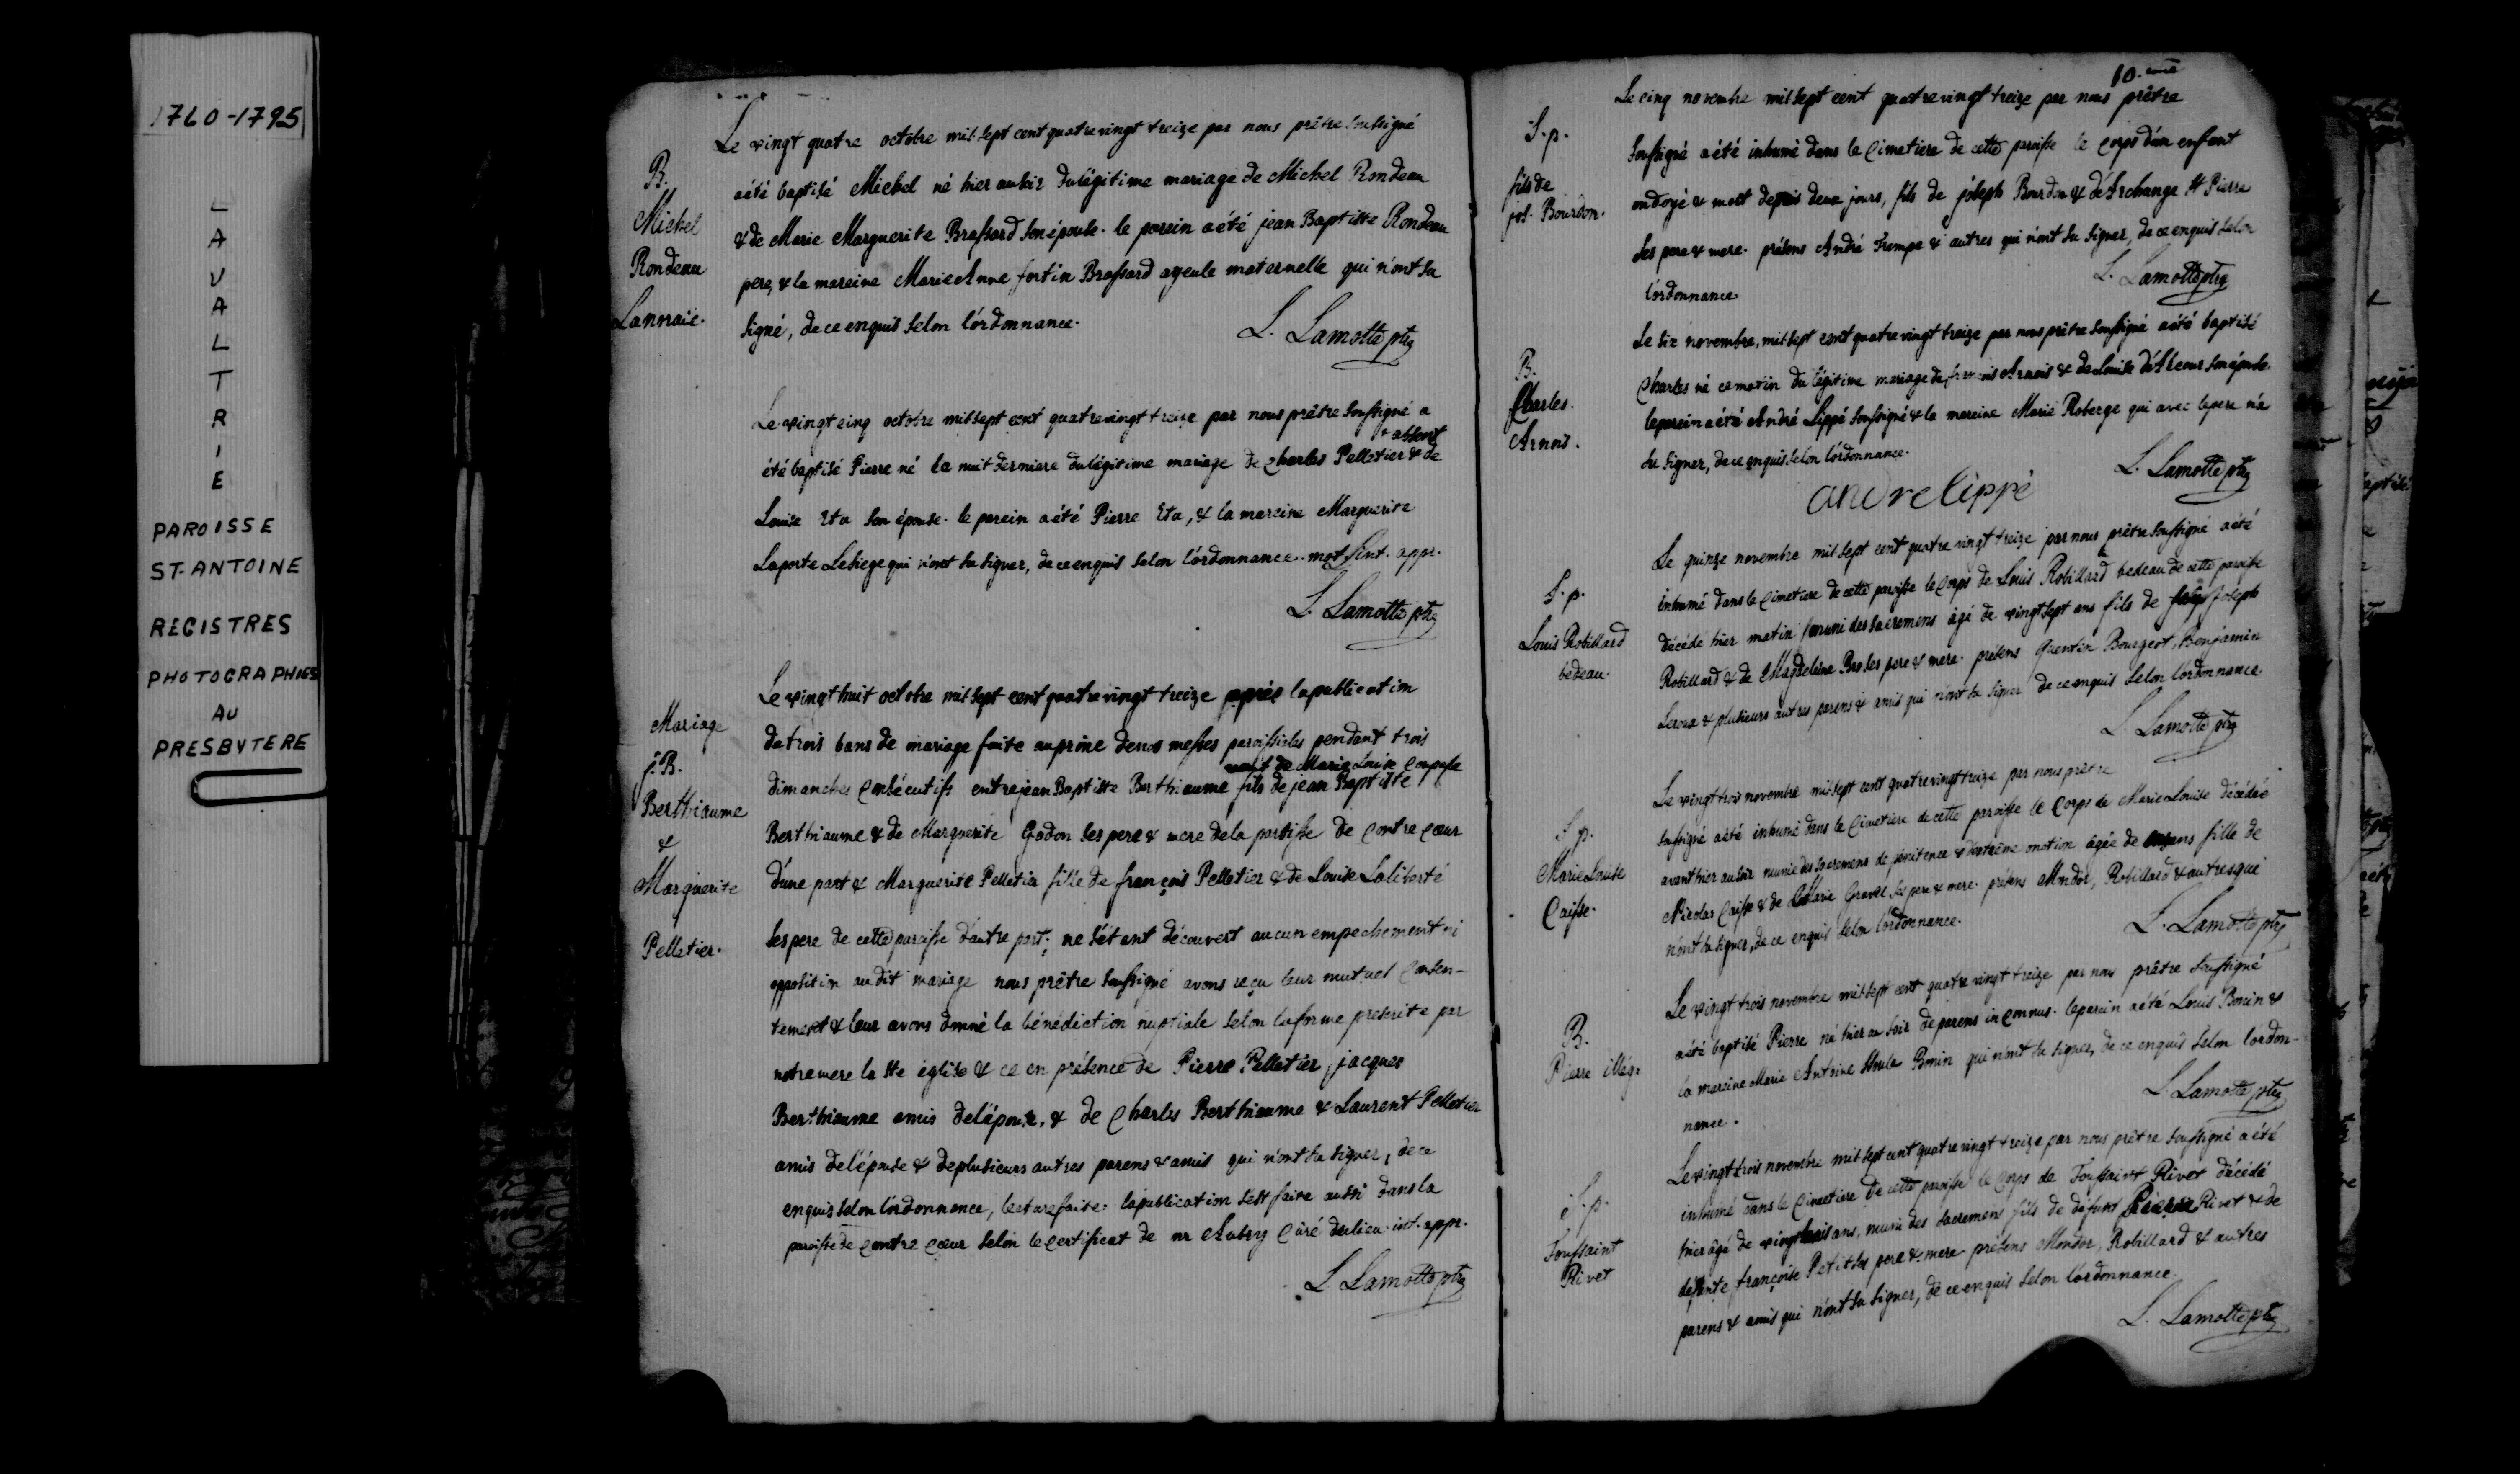 1760-1795
L
A
V
A
L
T
R
I
E
PAROISSE
ST-ANTOINE
REGISTRES
PHOTOGRAPHIES
AU
PRESBYTERE
B.
Michel
Rondeau
Lannraie.
Le vingt quatre octobre mil sept cent quatrevingt treize par nous prêtre soussigné
a été baptisé Michel né hier au soir du légitime mariage de Michel Rondeau
& de Marie Marguerite Brassard son épouse. le parein a été jean Baptiste Rondeau
pere, & la mareine Marie Anne fortin Brassard ayeule maternelle qui n'ont su
signé, de ce enquis selon l'ordonnance.
L. Lamotte ptre
Le vingt cinq octobre mil sept cent quatrevingt treize par nous prêtre soussigné a
+ absent
été baptisé Pierre né la nuit derniere du légitime mariage de Charles Pelletier & de
Louise Etu son épouse. le parein a été Pierre Etu, & la mareine Marguerite
Laporte Lesiege qui n'ont su signer, de ce enquis selon l'ordonnance. mot sint. appr.
L. Lamotte ptre
Mariage
j. B.
Berthiaume
&
Marguerite
Pelletier.
Le vingt huit octobre mil sept cent quatrevingt treize après la publication
de trois bans de mariage faite au prône de nos messes paroissiales pendant trois
veuf de Marie Louise
dimanches consécutifs entre jean Baptiste Berthiaume fils de jean Baptiste
Berthiaume & de Marguerite Godon ses pere & mere de la paroisse de Contre coeur
d'une part & Marguerite Pelletier fille de françois Pelletier & de Louise Laliberté
ses pere de cette paroisse d'autre part; ne s'étant découvert aucun empechement ni
opposition au dit mariage nous prêtre soussigné avons reçu leur mutuel consen-
tement & leur avons donné la bénédiction nuptiale selon la forme prescrite par
notre mere la Ste église & ce en présence de Pierre Pelletier, jacques
Berthiaume amis de l'époux, & de Charles Berthiaume & Laurent Pelletier
amis de l'épouse & de plusieurs autres parens & amis qui n'ont su signer, de ce
enquis selon l'ordonnance, lecture faite. la publication s'est faite aussi dans la
paroisse de contre coeur selon le certificat de mr Aubry Curé du lieu. int. appr.
L Lamotte ptre
10.eme
S. p.
fils de
jos. Bourdon.
Le cinq novembre mil sept cent quatrevingt treize par nous prêtre
soussigné a été inhumé dans le Cimetiere de cette paroisse le corps d'un enfant
ondoyé & mort depuis deux jours, fils de joseph Bourdon & d'Archange St Pierre
ses pere & mere. présens André Trempe & autres qui n'ont su signer, de ce enquis selon
l'ordonnance
L. Lamotte ptre
B.
Charles.
Arnois.
Le six novembre, mil sept cent quatre vingt treize par nous prêtre soussigné a été baptisé
Charles né ce matin du légitime mariage de françois Arnois & de Louise son épouse.
le parein a été André Lippé soussigné & la mareine Marie Roberge qui avec le pere n'a
su signer, de ce enquis selon l'ordonnance.
L. Lamotte ptre
andre lippé
S. p.
Louis Robillard
bedeau.
Le quinze novembre mil sept cent quatre vingt treize par nous prêtre soussigné a été
inhumé dans le Cimetiere de cette paroisse le corps de Louis Robillard bedeau de cette paroisse
décédé hier matin muni des sacremens âgé de vingt sept ans fils de joseph
Robillard & de Magdeleine ses pere & mere. présens Quentin Bourgeot, Benjamin
Leroux & plusieurs autres parens & amis qui n'ont su signer de ce enquis selon l'ordonnance.
L. Lamotte ptre
S. p.
Marie Louise
Caisse.
Le vingt trois novembre mil sept cent quatrevingt treize par nous prêtre
soussigné a été inhumé dans le Cimetiere de cette paroisse le Corps de Marie Louise décédée
avant hier au soir munie des sacremens de pénitence & d'extrême onction âgée de ans fille de
Nicolas Caisse & de Marie Gravel ses pere & mere. présens Mondor, Robillard & autres qui
n'ont su signer, de ce enquis selon l'ordonnance.
L. Lamotte ptre
B.
Pierre illég.
Le vingt trois novembre mil sept cent quatre vingt treize par nous prêtre soussigné
a été baptisé Pierre né hier au soir de parens inconnus. le parein a été Louis Bonin &
la mareine Marie Antoine Bonin qui n'ont su signer, de ce enquis selon l'ordon-
nance.
L. Lamotte ptre
S. p.
Toussaint
Rivet
Le vingt trois novembre mil sept cent quatre vingt treize par nous prêtre soussigné a été
inhumé dans le Cimetiere de cette paroisse le Corps de Toussaint Rivet décédé
hier âgé de vingt trois ans, muni des sacremens fils de défunt Pierre Rivet & de
défunte françoise Petit ses pere & mere présens Mondor, Robillard & autres
parens & amis qui n'ont su signer, de ce enquis selon l'ordonnance.
L. Lamotte ptre